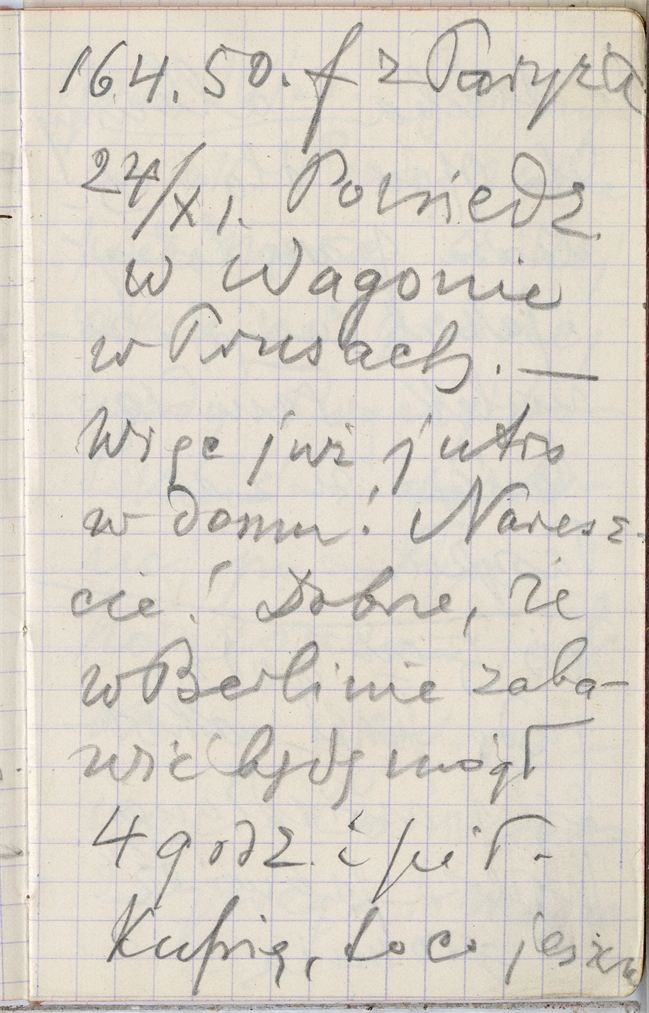 164.50. f z Paryża
24/XI. Poniedz.
w Wagonie
w Prusach. —
Więc już jutro
w domu! Naresz-
cie! Dobrze, że
w Berlinie zaba-
wić będę mógł
4 godz. i pół.
Kupię, to co jeszcze